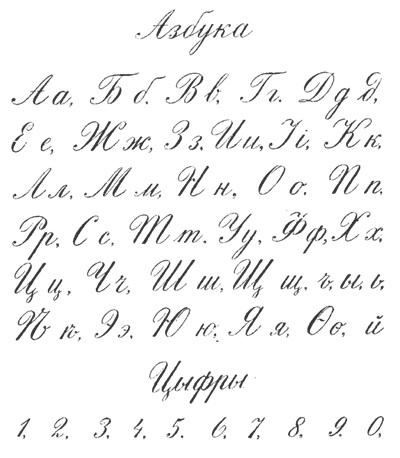 Азбука
Аа, Бб. Вв, Гг. Ддд,
Ее, Жж, Зз, Ии, Іі, Кк,
Лл, Мм, Нн, Оо, Пп,
Рр, Сс, Тт. Уу, Фф, Хх,
Цц, Чч, Шш, Щщ, ъ, ы, ь,
Ѣѣ, Ээ, Юю, Яя, Ѳѳ, й
Цыфры
1, 2, 3, 4, 5. 6, 7, 8, 9. 0,